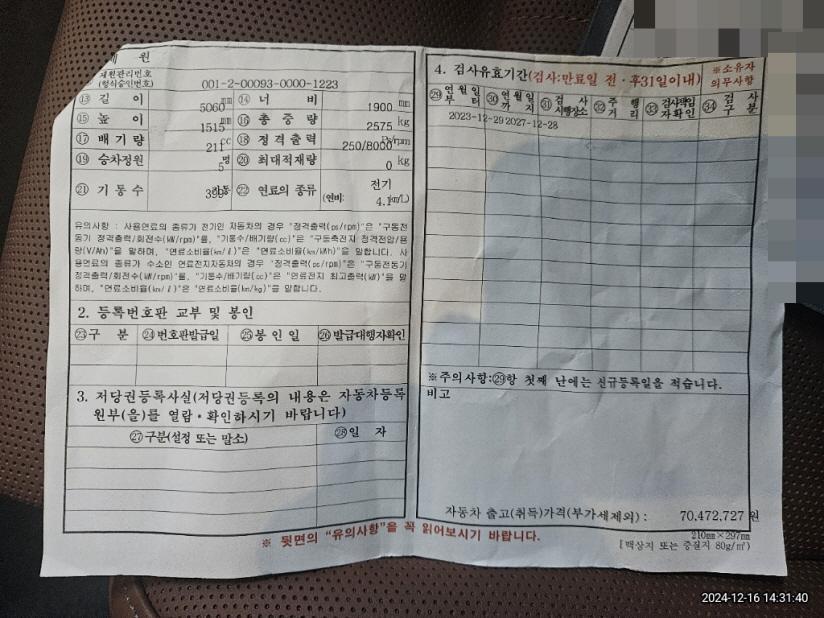 제 원
제원관리번호
(형식승인번호) 001-2-00093-0000-1223
⑬ 길 이 5060 mm ⑭ 너 비 1900 mm
⑮ 높 이 1515 mm ⑯ 총 중 량 2575 kg
⑰ 배 기 량 211 cc ⑱ 정 격 출 력 250/8000 Ps/rpm
⑲ 승차정원 5 명 ⑳ 최대적재량 0 kg
㉑ 기 통 수 399 기통 ㉒ 연료의 종류 전기
(연비: 4.1 km/L)
유의사항 : 사용연료의 종류가 전기인 자동차의 경우 "정격출력(ps/rpm)"은 "구동전
동기 정격출력/회전수(kW/rpm)"를, "기통수/배기량(cc)"는 "구동축전지 정격전압/용
량(V/Ah)"을 말하며, "연료소비율(km/ℓ)"은 "연료소비율(km/kWh)"을 말합니다. 사
용연료의 종류가 수소인 연료전지자동차의 경우 "정격출력(ps/rpm)"은 "구동전동기
정격출력/회전수(kW/rpm)"를, "기통수/배기량(cc)"은 "연료전지 최고출력(kW)"을 말
하며, "연료소비율(km/ℓ)"은 "연료소비율(km/kg)"을 말합니다.
2. 등록번호판 교부 및 봉인
㉓구 분 ㉔번호판발급일 ㉕봉 인 일 ㉖발급대행자확인
3. 저당권등록사실(저당권등록의 내용은 자동차등록
원부(을)를 열람・확인하시기 바랍니다)
㉗구분(설정 또는 말소) ㉘일 자
※ 뒷면의 "유의사항"을 꼭 읽어보시기 바랍니다.
4. 검사유효기간(검사:만료일 전・후31일이내) ※소유자
의무사항
㉙연 월 일 부 터 ㉚연 월 일 까 지 ㉛검 사 시행장소 ㉜주 행 거 리 ㉝검사책임 자확인 ㉞검 사 구 분
2023-12-29 2027-12-28
※주의사항:㉙항 첫째 난에는 신규등록일을 적습니다.
비고
자동차 출고(취득)가격(부가세제외) : 70,472,727 원
210㎜×297㎜
[백상지 또는 중질지 80g/㎡]
2024-12-16 14:31:40